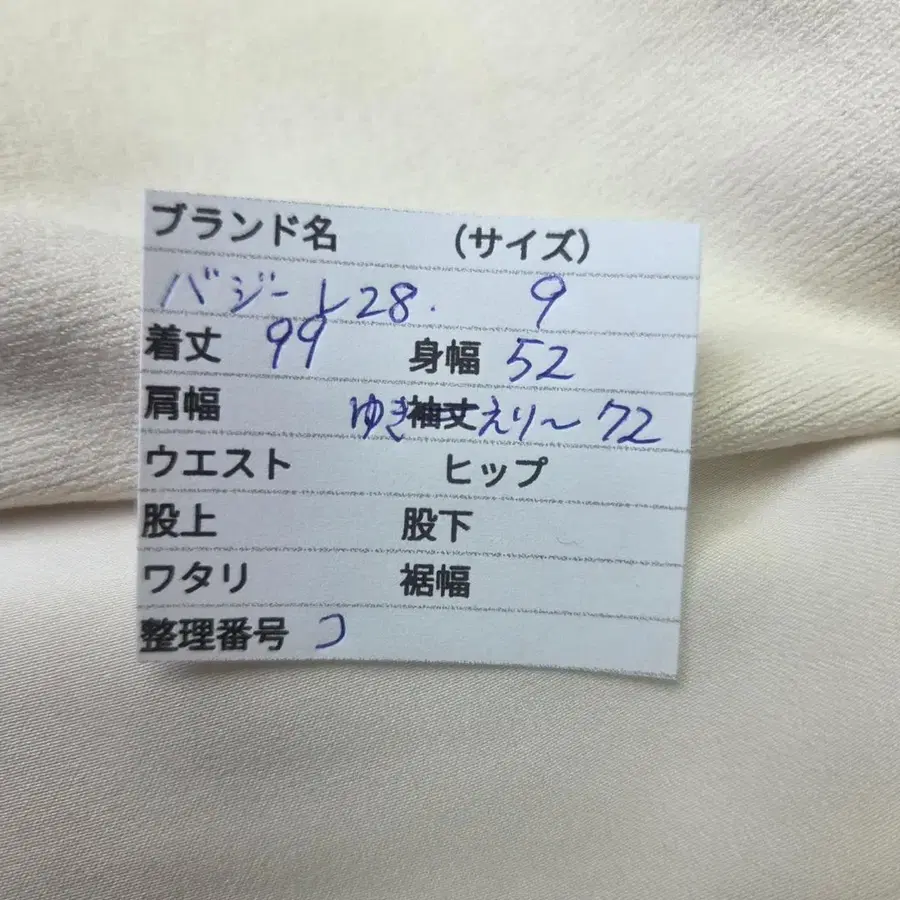 ブランド名 (サイズ)
バジーレ28. 9
着丈 99 身幅 52
肩幅 ゆき袖丈えり～72
ウエスト ヒップ
股上 股下
ワタリ 裾幅
整理番号 コ